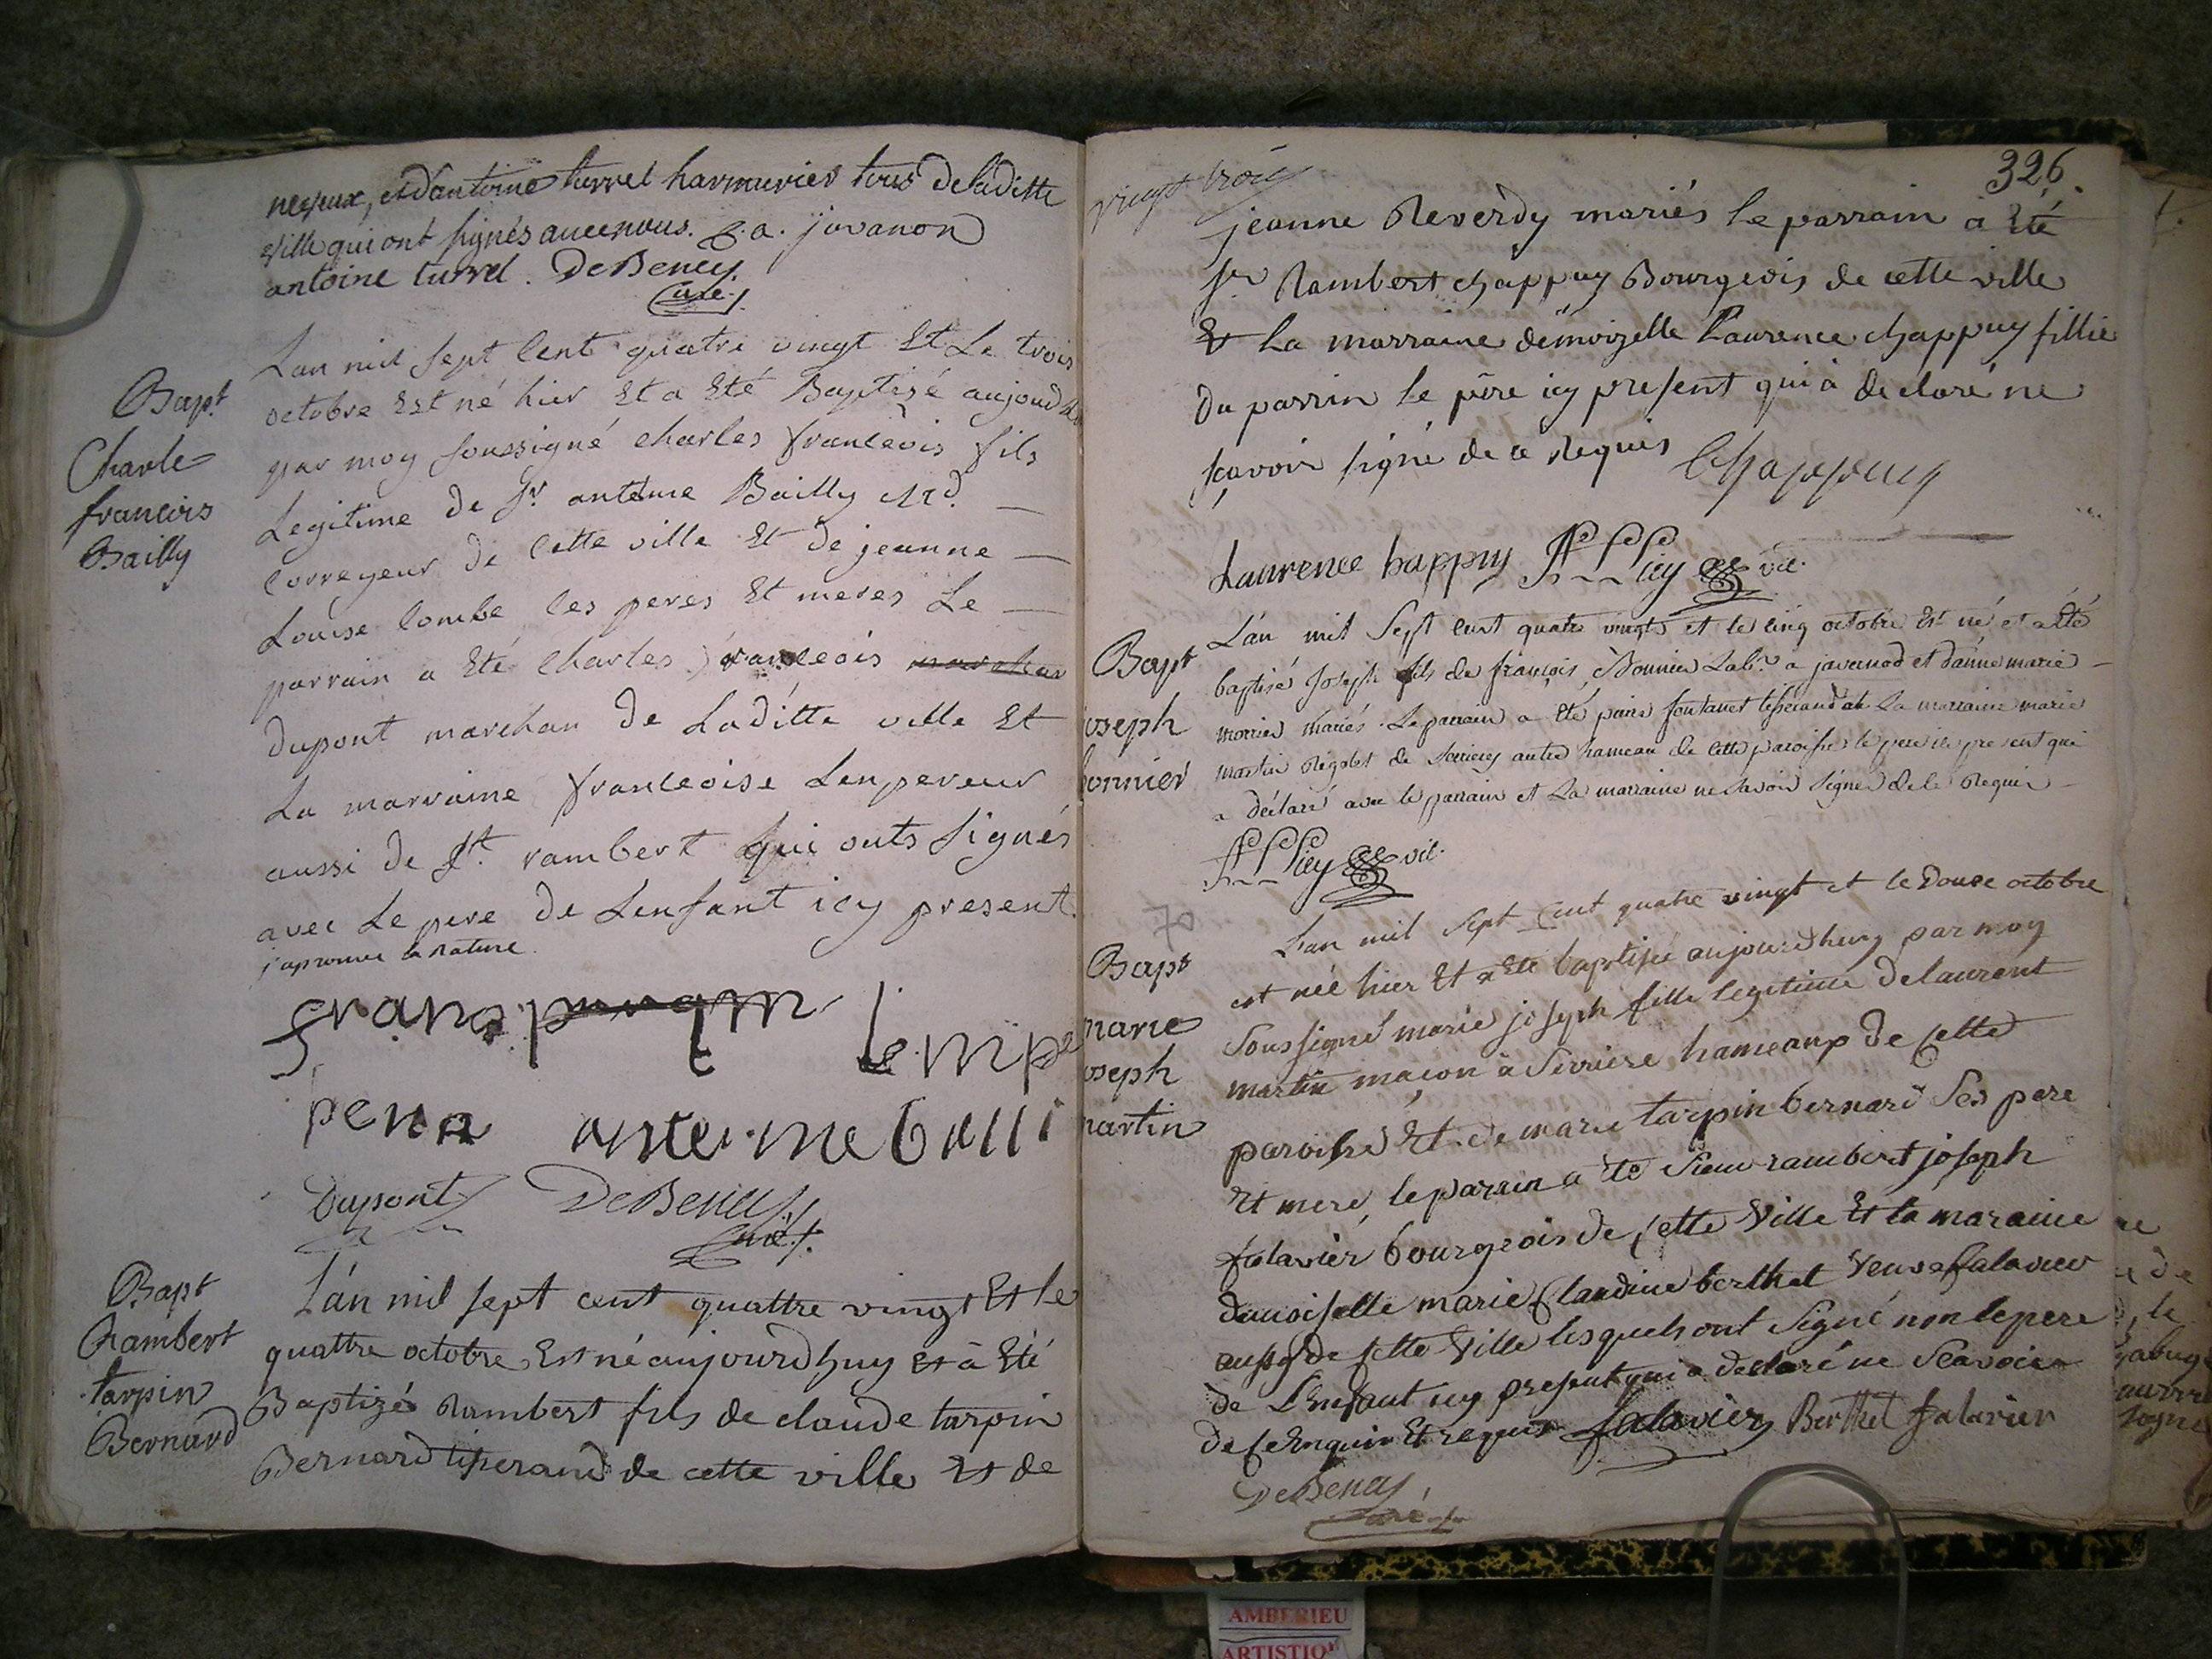 neveux, et d'antoine turrel harmurier tous de laditte
ville qui ont signés avec nous. j. a. javanon
antoine turrel. DeBeney
Curé
Bapt
Charle
francois
Bailly
Lan mil sept Cent quatre vingt Et Le trois
octobre Est né hier Et a Eté Baptizé aujoud
par moy soussigné charles francèois fils
Legitime de Sr antelme Bailly Md.
Correyeur de Cette ville Et de jeanne
Louise Combe les peres Et meres Le
parrain a Eté Charles francèois marchan
dupont marchan de Laditte ville Et
La marraine francèoise Lenpereur
aussi de St. rambert qui onts signés
avec Le pere de Lenfant icy present.
franc Lempe
pena antei.me balli
Dupont DeBeney
Curé
Bapt
Rambert
tarpin
Bernard
L'an mil sept cent quattre vingt Et le
quattre octobre Est né aujourdhuy et à Eté
Baptizé Rambert fils de claude tarpin
Bernard tisserand de cette ville et de
vingt trois
326.
jeanne Reverdy mariés le parrain à Eté
sr Rambert chappuy Bourgeois de cette ville
Et La marraine demoizelle Laurence chappuy fillie
du parrin le père icy present qui à declaré ne
sçavoir signé de ce Requis Chappuy
Laurence happuy vic.
Bapt
joseph
bonnier
L'an mil Sept cent quatre vingts et le cinq octobre Est né et a Eté
baptisé Joseph fils de françois Bonnier Labr. a javanod et d'anne marie
morrier mariés. Le parrain a Eté pierre fontanet tisserand La marraine marie
martin Rigolet de Serrieres autre hameau de cette paroisse le pere icy present qui
a déclaré avec le parrain et La marraine ne savoir signer de ce Requis
vic.
70
Bapt
marie
joseph
martin
L'an mil sept Cent quatre vingt et le Douze octobre
est née hier Et a Eté baptisée aujourdhuy par moy
Soussigné marie joseph fille legitime de laurent
martin maçon à Serriere hameaux de Cette
paroisse Et de marie tarpin bernard Ses pere
Et mere, le parrain a été Sieur rambert joseph
falavier bourgeois de Cette Ville Et la maraine
demoiselle marie Claudine berthet veuve falavier
aussy de Cette Ville lesquels ont Signé non le pere
de L'enfant icy present qui a declaré ne Scavoir
de ce Enquis Et requis falavier Berthet falavier
DeBeney
Curé
AMBERIEU
ARTISTIQ